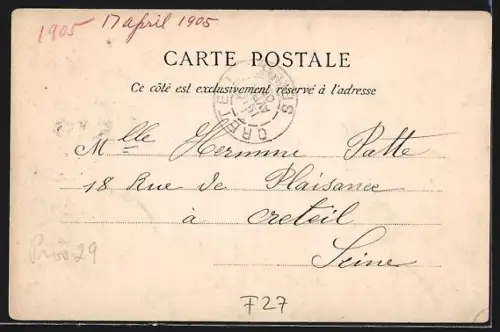 1905 17 april 1905
CARTE POSTALE
Ce côté est exclusivement réservé à l'adresse
CRETEIL SEINE
Mlle Hermine Patte
18 Rue de Plaisance
à creteil
Seine
F27